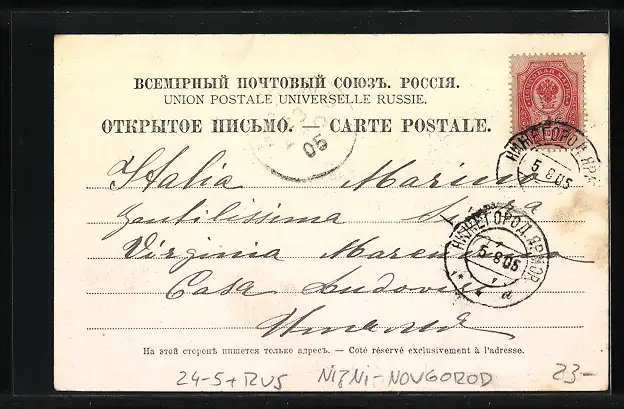 ВСЕМІРНЫЙ ПОЧТОВЫЙ СОЮЗЪ. РОССІЯ.
UNION POSTALE UNIVERSELLE RUSSIE.
ОТКРЫТОЕ ПИСЬМО. — CARTE POSTALE.
05
НИЖЕГОРОД. ЯРМ
5 8 05
Italia Marina
Gentilissima
Virginia
НИЖЕГОРОД. ЯРМОР.
5 8 05
а
Casa
На этой сторонѣ пишется только адресъ. — Coté réservé exclusivement à l'adresse.
24-5+RUS NIZNI-NOVGOROD 23-